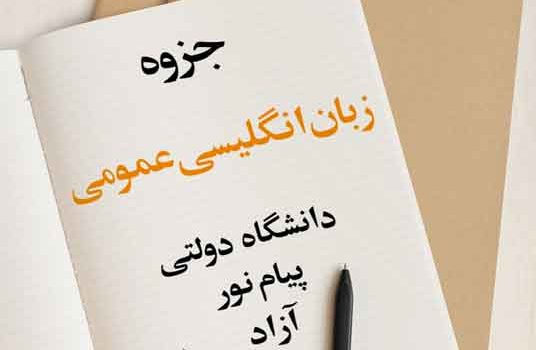 جزوه
زبان انگلیسی عمومی
دانشگاه دولتی
پیام نور
آزاد